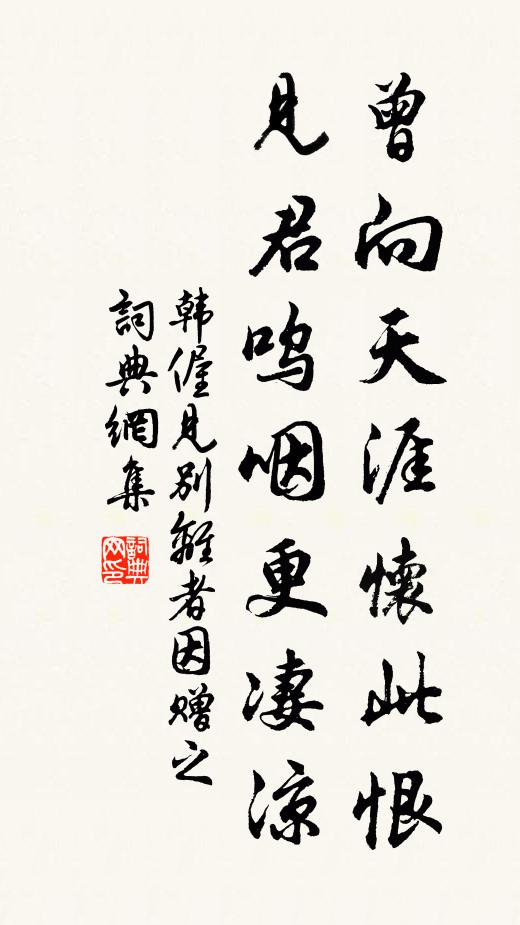 曾向天涯懷此恨
見君嗚咽更凄涼
韩偓見别離者因赠之
詞典網集
詞典
网印